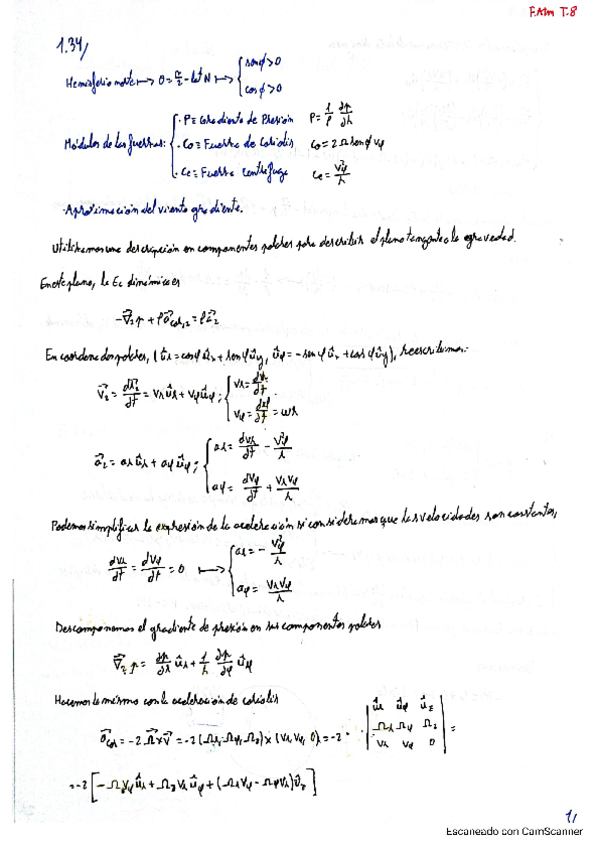 F.Atm T.8
1.34/
Hemisferio norte ↦ θ = π/2 - lat N ↦ { senϕ > 0
cosϕ > 0
Módulos de las fuerzas: { · P ≡ Gradiente de Presión P = 1/ρ ∂p/∂r
· Co ≡ Fuerza de Coriolis Co = 2Ω senϕ vφ
· Ce ≡ Fuerza centrífuga Ce = vφ²/r
· Aproximación del viento gradiente.
Utilizamos una descripción en componentes polares para describir el plano tangente a la gravedad.
En este plano, la Ec dinámica es
-∇⃗₂p + ρa⃗cor,2 = ρa⃗₂
En coordenadas polares, (ûr = cosφ ûx + senφ ûy, ûφ = -senφ ûx + cosφ ûy), reescribimos:
v⃗₂ = dr⃗₂/dt = vr ûr + vφ ûφ ; { vr = dr/dt
vφ = = ωr
a⃗₂ = ar ûr + aφ ûφ ; { ar = dvr/dt - vφ²/r
aφ = dvφ/dt + vr vφ/r
Podemos simplificar la expresión de la aceleración si consideramos que las velocidades son constantes,
dvr/dt = dvφ/dt = 0 ↦ { ar = - vφ²/r
aφ = vr vφ/r
Descomponemos el gradiente de presión en sus componentes polares
∇⃗₂p = ∂p/∂r ûr + 1/r ∂p/∂φ ûφ
Hacemos lo mismo con la aceleración de coriolis
a⃗cor = -2 Ω⃗ × v⃗ = -2 (Ωr, Ωφ, Ωz) × (vr, vφ, 0) = -2 · | ûr ûφ ûz
Ωr Ωφ Ωz
vr vφ 0 | =
= -2 [ -Ωz vφ ûr + Ωz vr ûφ + (Ωr vφ - Ωφ vr) ûz ]
1/
Escaneado con CamScanner